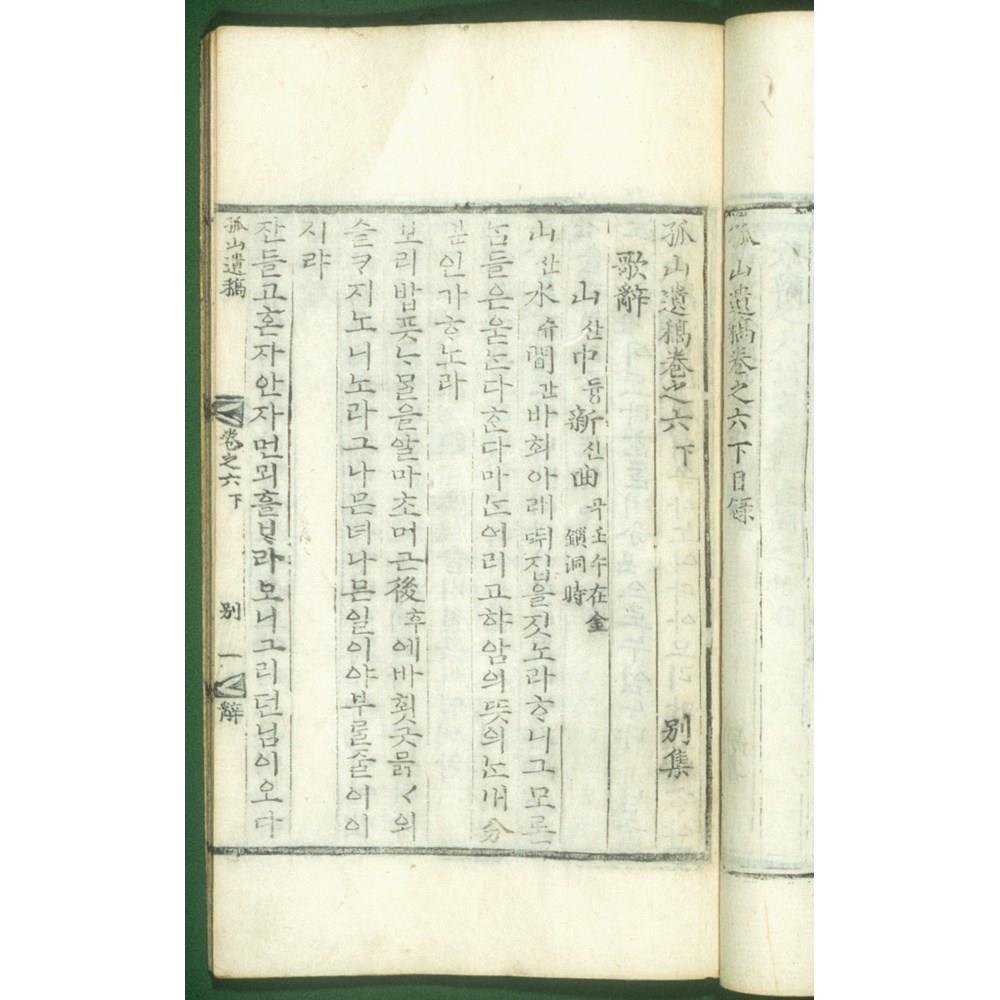 孤山遺稿卷之六下目錄
孤山遺稿卷之六 下 別集
歌辭
山산中듕新신曲곡 壬午在金鎖洞時
山산水슈間간바회아래뛰집을짓노라ᄒᆞ니그모론
ᄂᆞᆷ들은욷ᄂᆞᆫ다ᄒᆞᆫ다마ᄂᆞᆫ어리고햐암의뜻의ᄂᆞᆫ내分
분인가ᄒᆞ노라
보리밥풋ᄂᆞᄆᆞᆯ을알마초머근後후에바횟긋믉ᄀᆞ의
슬ᄏᆞ지노니노라그나믄녀나믄일이야부ᄅᆞᆯ줄이이
시랴
잔들고혼자안자먼뫼흘ᄇᆞ라보니그리던님이오다
孤山遺稿 卷之六 下 別 一 辭